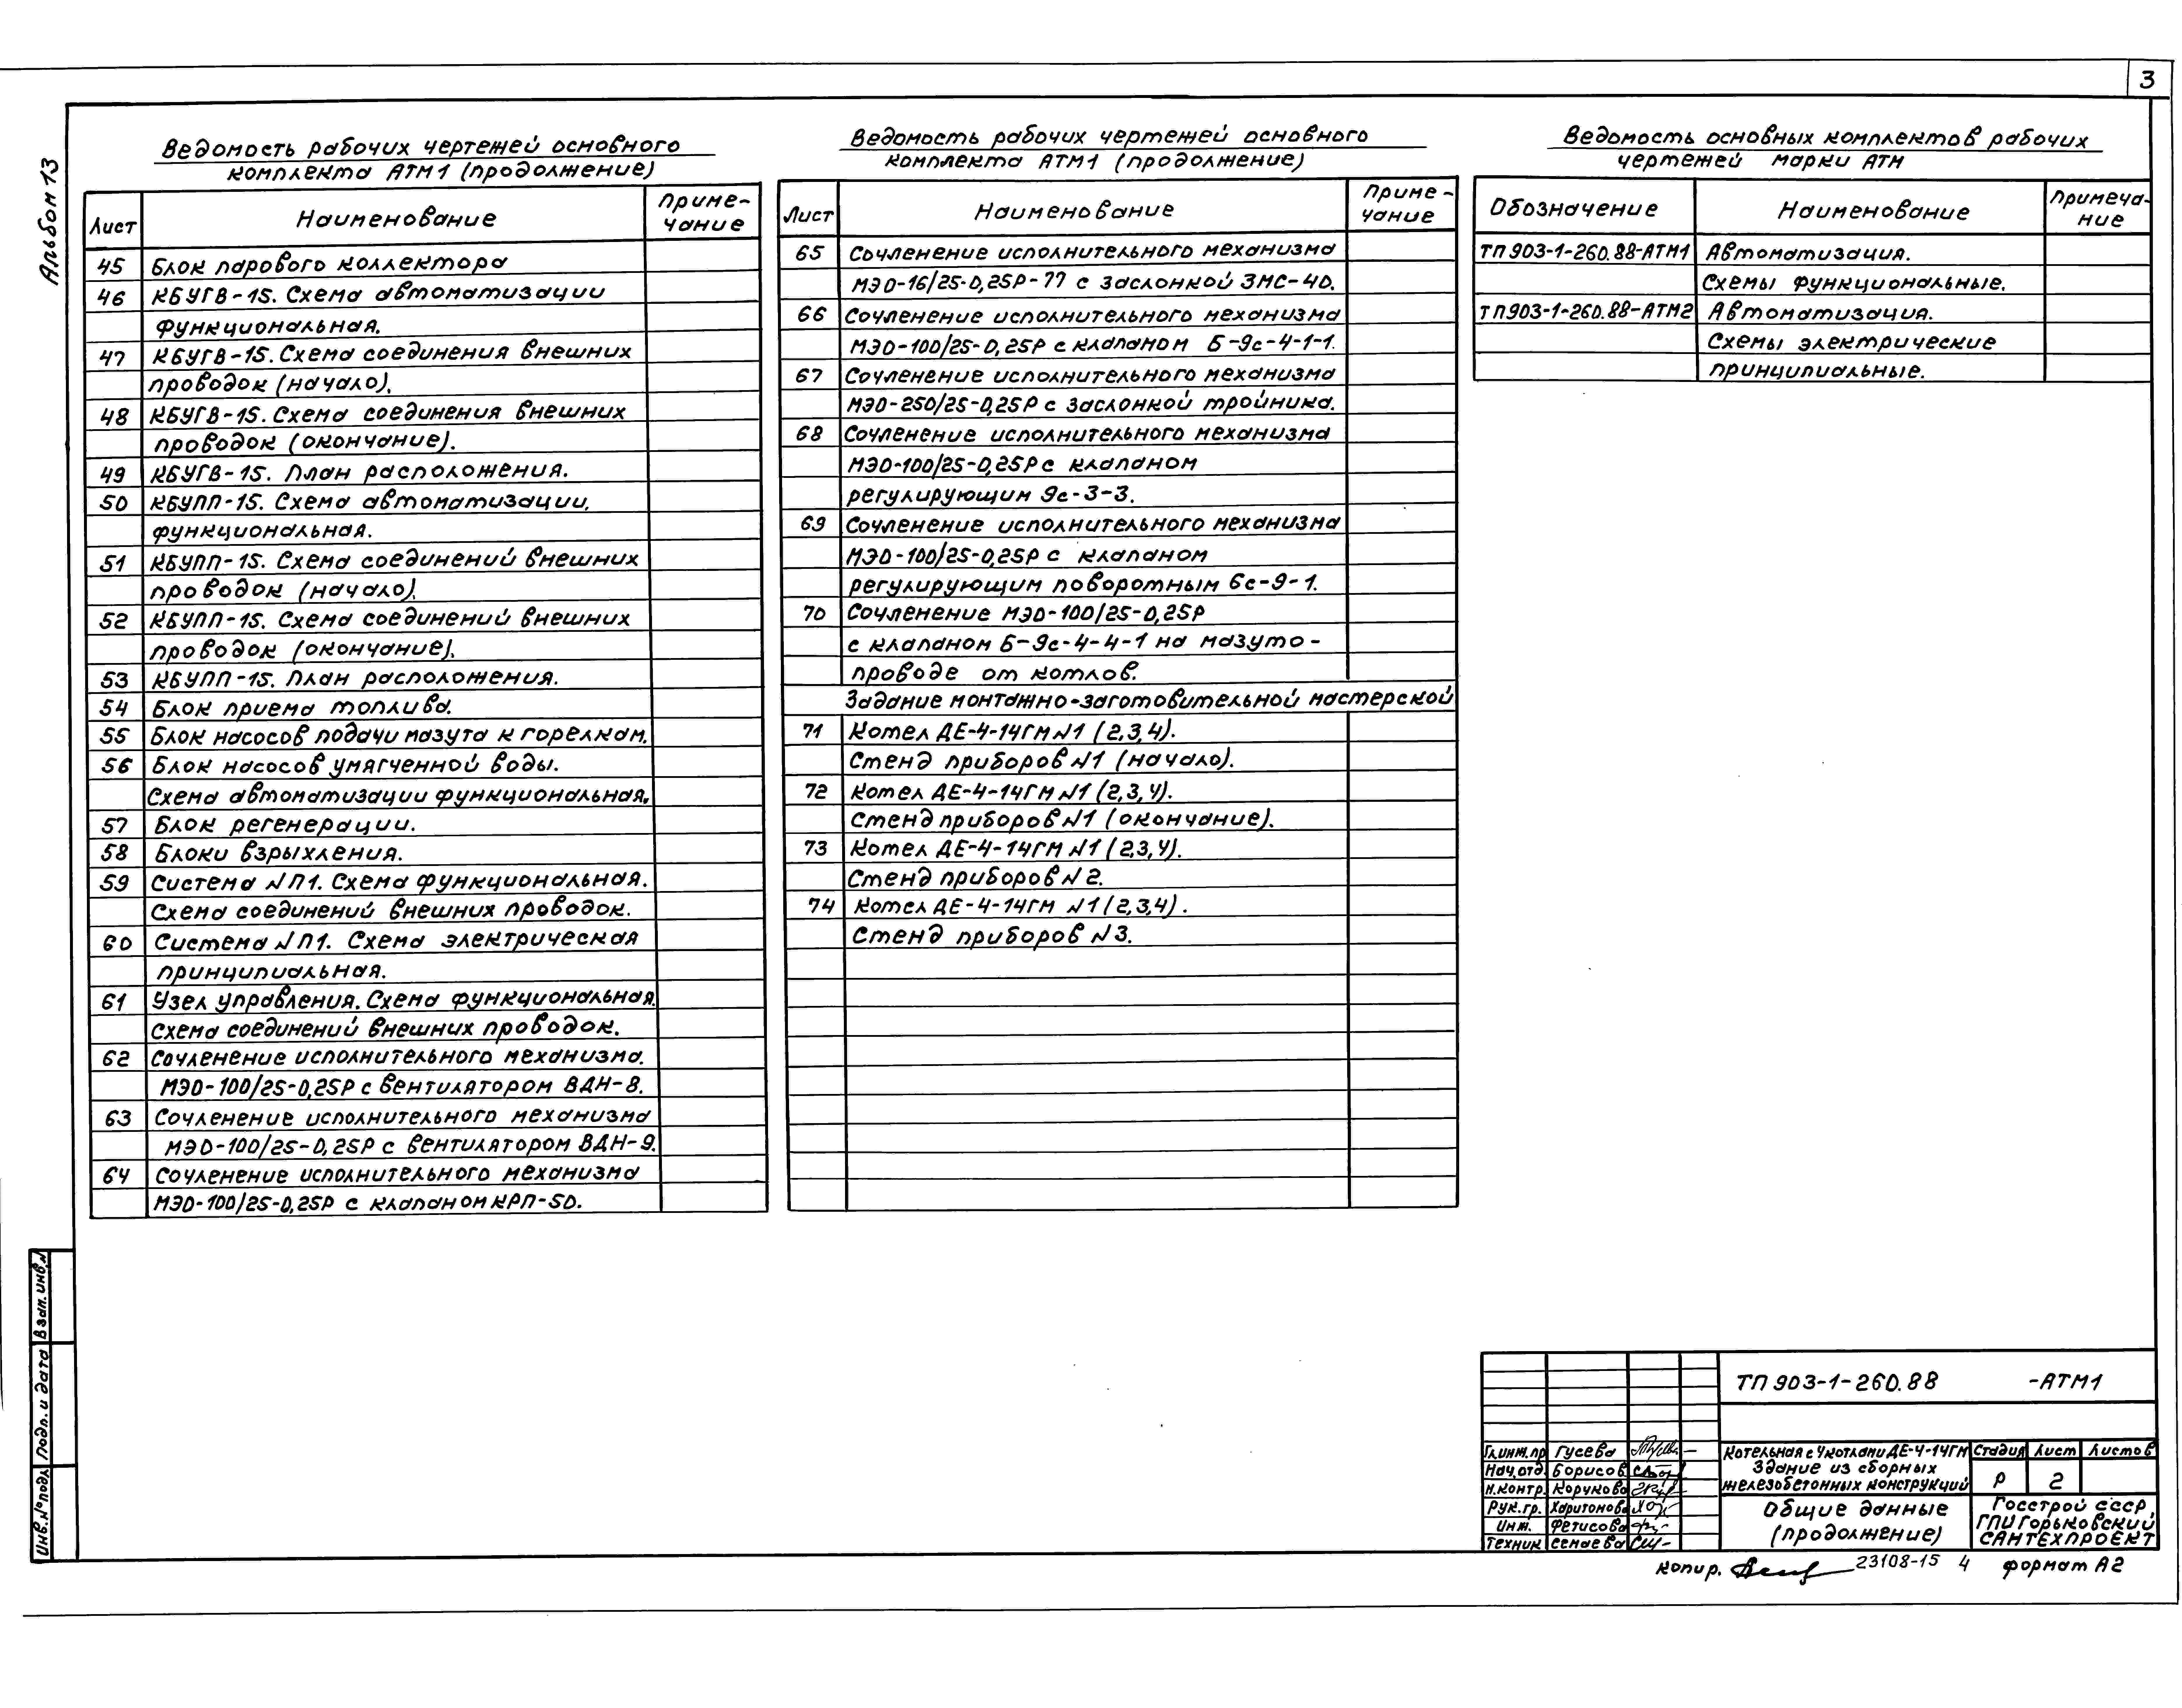 3
Альбом 13
Ведомость рабочих чертежей основного
комплекта АТМ1 (продолжение)
Лист Наименование Приме-
чание
45 Блок парового коллектора
46 КБУГВ-15. Схема автоматизации
функциональная.
47 КБУГВ-15. Схема соединения внешних
проводок (начало).
48 КБУГВ-15. Схема соединения внешних
проводок (окончание).
49 КБУГВ-15. План расположения.
50 КБУПП-15. Схема автоматизации,
функциональная.
51 КБУПП-15. Схема соединений внешних
проводок (начало).
52 КБУПП-15. Схема соединений внешних
проводок (окончание).
53 КБУПП-15. План расположения.
54 Блок приема топлива.
55 Блок насосов подачи мазута к горелкам.
56 Блок насосов умягченной воды.
Схема автоматизации функциональная.
57 Блок регенерации.
58 Блоки взрыхления.
59 Система №П1. Схема функциональная.
Схема соединений внешних проводок.
60 Система №П1. Схема электрическая
принципиальная.
61 Узел управления. Схема функциональная.
Схема соединений внешних проводок.
62 Сочленение исполнительного механизма.
МЭО-100/25-0,25Р с вентилятором ВДН-8.
63 Сочленение исполнительного механизма
МЭО-100/25-0,25Р с вентилятором ВДН-9.
64 Сочленение исполнительного механизма
МЭО-100/25-0,25Р с клапаном КРП-50.
Ведомость рабочих чертежей основного
комплекта АТМ1 (продолжение)
Лист Наименование Приме-
чание
65 Сочленение исполнительного механизма
МЭО-16/25-0,25Р-77 с заслонкой ЗМС-40.
66 Сочленение исполнительного механизма
МЭО-100/25-0,25Р с клапаном Б-9с-4-1-1.
67 Сочленение исполнительного механизма
МЭО-250/25-0,25Р с заслонкой тройника.
68 Сочленение исполнительного механизма
МЭО-100/25-0,25Р с клапаном
регулирующим 9с-3-3.
69 Сочленение исполнительного механизма
МЭО-100/25-0,25Р с клапаном
регулирующим поворотным 6с-9-1.
70 Сочленение МЭО-100/25-0,25Р
с клапаном Б-9с-4-4-1 на мазуто-
проводе от котлов.
Задание монтажно-заготовительной мастерской
71 Котел ДЕ-4-14ГМ №1 (2,3,4).
Стенд приборов №1 (начало).
72 Котел ДЕ-4-14ГМ №1 (2,3,4).
Стенд приборов №1 (окончание).
73 Котел ДЕ-4-14ГМ №1 (2,3,4).
Стенд приборов №2.
74 Котел ДЕ-4-14ГМ №1 (2,3,4).
Стенд приборов №3.
Ведомость основных комплектов рабочих
чертежей марки АТМ
Обозначение Наименование Примеча-
ние
ТП 903-1-260.88-АТМ1 Автоматизация.
Схемы функциональные.
ТП 903-1-260.88-АТМ2 Автоматизация.
Схемы электрические
принципиальные.
Взам. инв.№
Подп. и дата
Инв.№ подл.
ТП 903-1-260.88 -АТМ1
Гл.инж.пр Гусева
Нач.отд. Борисов
Н.контр. Коруково
Рук.гр. Харитонова
Инж. Фетисова
Техник Семаева
Котельная с 4 котлами ДЕ-4-14ГМ
Здание из сборных
железобетонных конструкций
Стадия Лист Листов
Р 2
Общие данные
(продолжение)
Госстрой СССР
ГПИ Горьковский
САНТЕХПРОЕКТ
Копир. 23108-15 4 формат А2